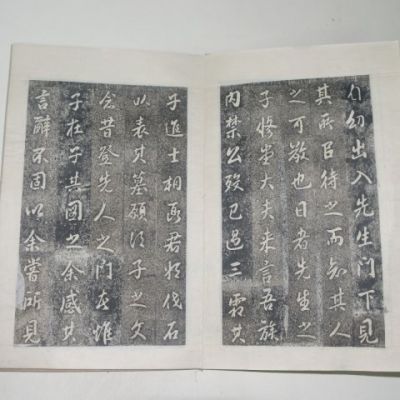 幼出入先生門下見
其所以待之而知其人
之可敬也日者先生之
子修其大夫来言吾族
内禁公歿已過三霜其
子進士相函君将伐石
以表其墓願得子之文
念昔登先人之門在惟
子在子其圖之余感其
言辭不固以余嘗所見